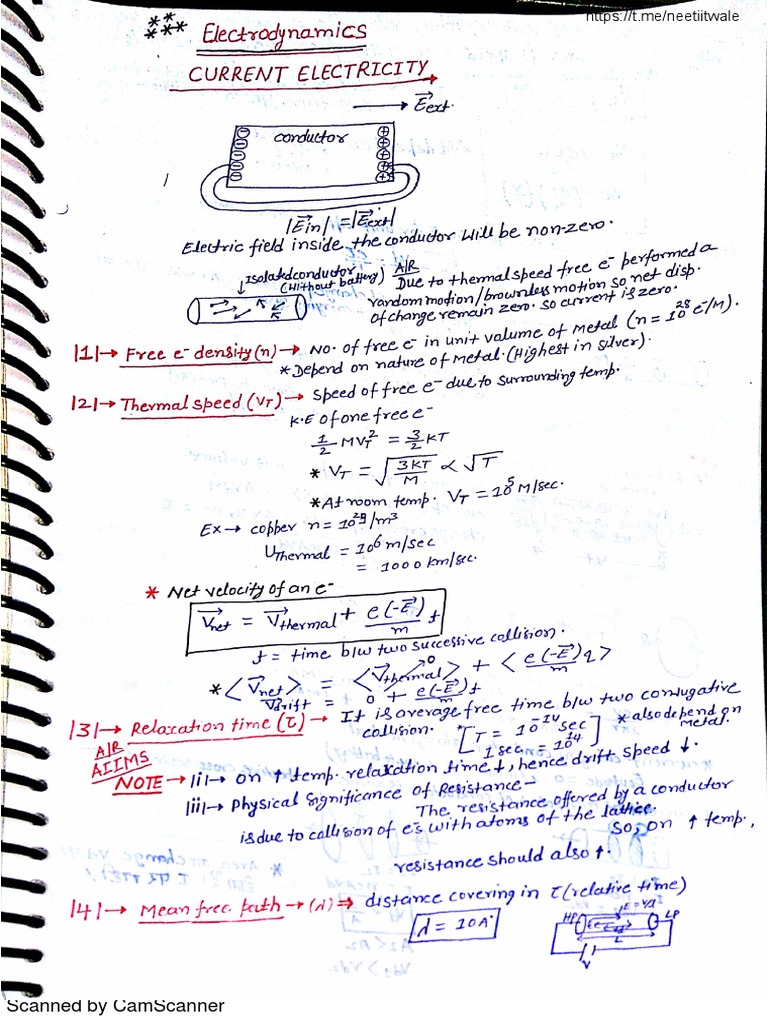 https://t.me/neetiitwale
Electrodynamics
CURRENT ELECTRICITY
E⃗ext.
conductor
|E⃗in| = |E⃗ext|
Electric field inside the conductor will be non-zero.
Isolated conductor
(Without battery)
AIR
Due to thermal speed free e⁻ performed a
random motion/brownless motion so net disp.
of change remain zero. so current is zero.
|1|→ Free e⁻ density (n) → No. of free e⁻ in unit volume of metal (n = 10²⁸ e⁻/M).
* Depend on nature of metal. (Highest in silver).
|2|→ Thermal speed (VT) → speed of free e⁻ due to surrounding temp.
K.E of one free e⁻
1/2 MVT² = 3/2 KT
* VT = √(3KT/M) ∝ √T
* At room temp. VT = 10⁵ M/sec.
Ex → copper n = 10²⁹/m³
UThermal = 10⁶ m/sec
= 1000 km/sec.
* Net velocity of an e⁻
V⃗net = V⃗thermal + e(-E⃗)/m t
t = time b/w two successive collision.
* <V⃗net> = <V⃗thermal>⁰ + <e(-E⃗)/m τ>
V⃗drift = 0 + e(-E⃗)/m t
|3|→ Relaxation time (τ) → It is average free time b/w two conjugative
collision. [T = 10⁻¹⁴ sec
1 sec = 10¹⁴]
* also depend on
metal.
AIR
AIIMS
NOTE → |i|→ on ↑ temp. relaxation time ↓, hence drift speed ↓.
|ii|→ Physical Significance of Resistance-
The resistance offered by a conductor
is due to collision of e⁻s with atoms of the lattice.
So, on ↑ temp.,
resistance should also ↑.
|4|→ Mean free path → (λ) ⇒ distance covering in τ (relative time)
λ = 10A°
HP
E = V/l
LP
L
V
Scanned by CamScanner